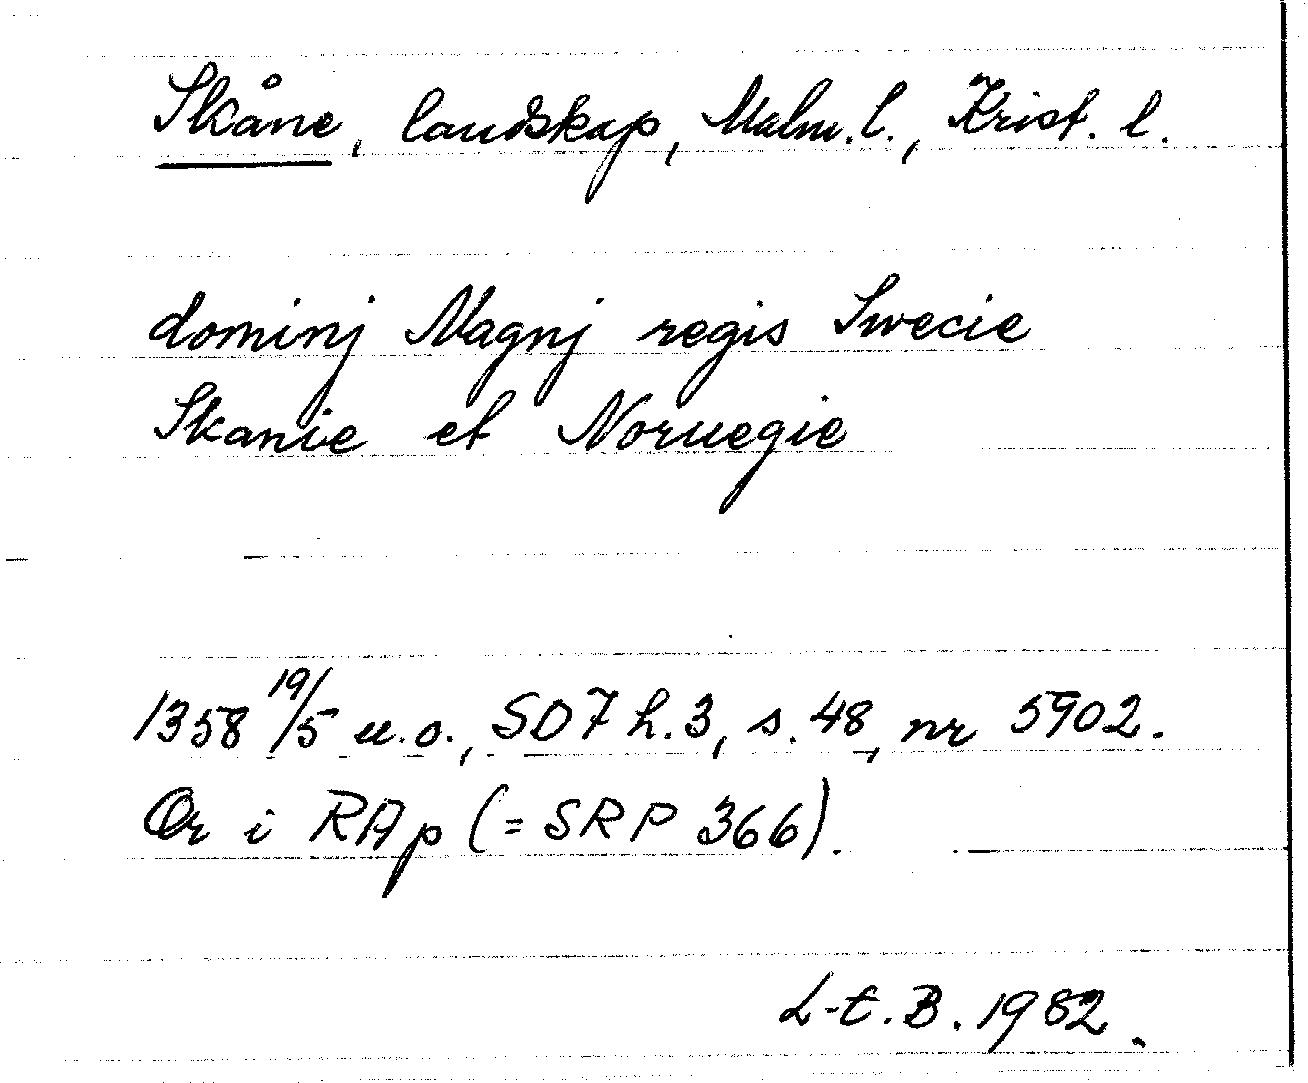 Skåne, landskap, Malm. l., Krist. l.
dominj Magnj regis Swecie
Skanie et Noruegie
1358 19/5 u.o., SD 7 h. 3, s. 48, nr 5902.
Or i RAp (= SRP 366).
L-E. B. 1982.